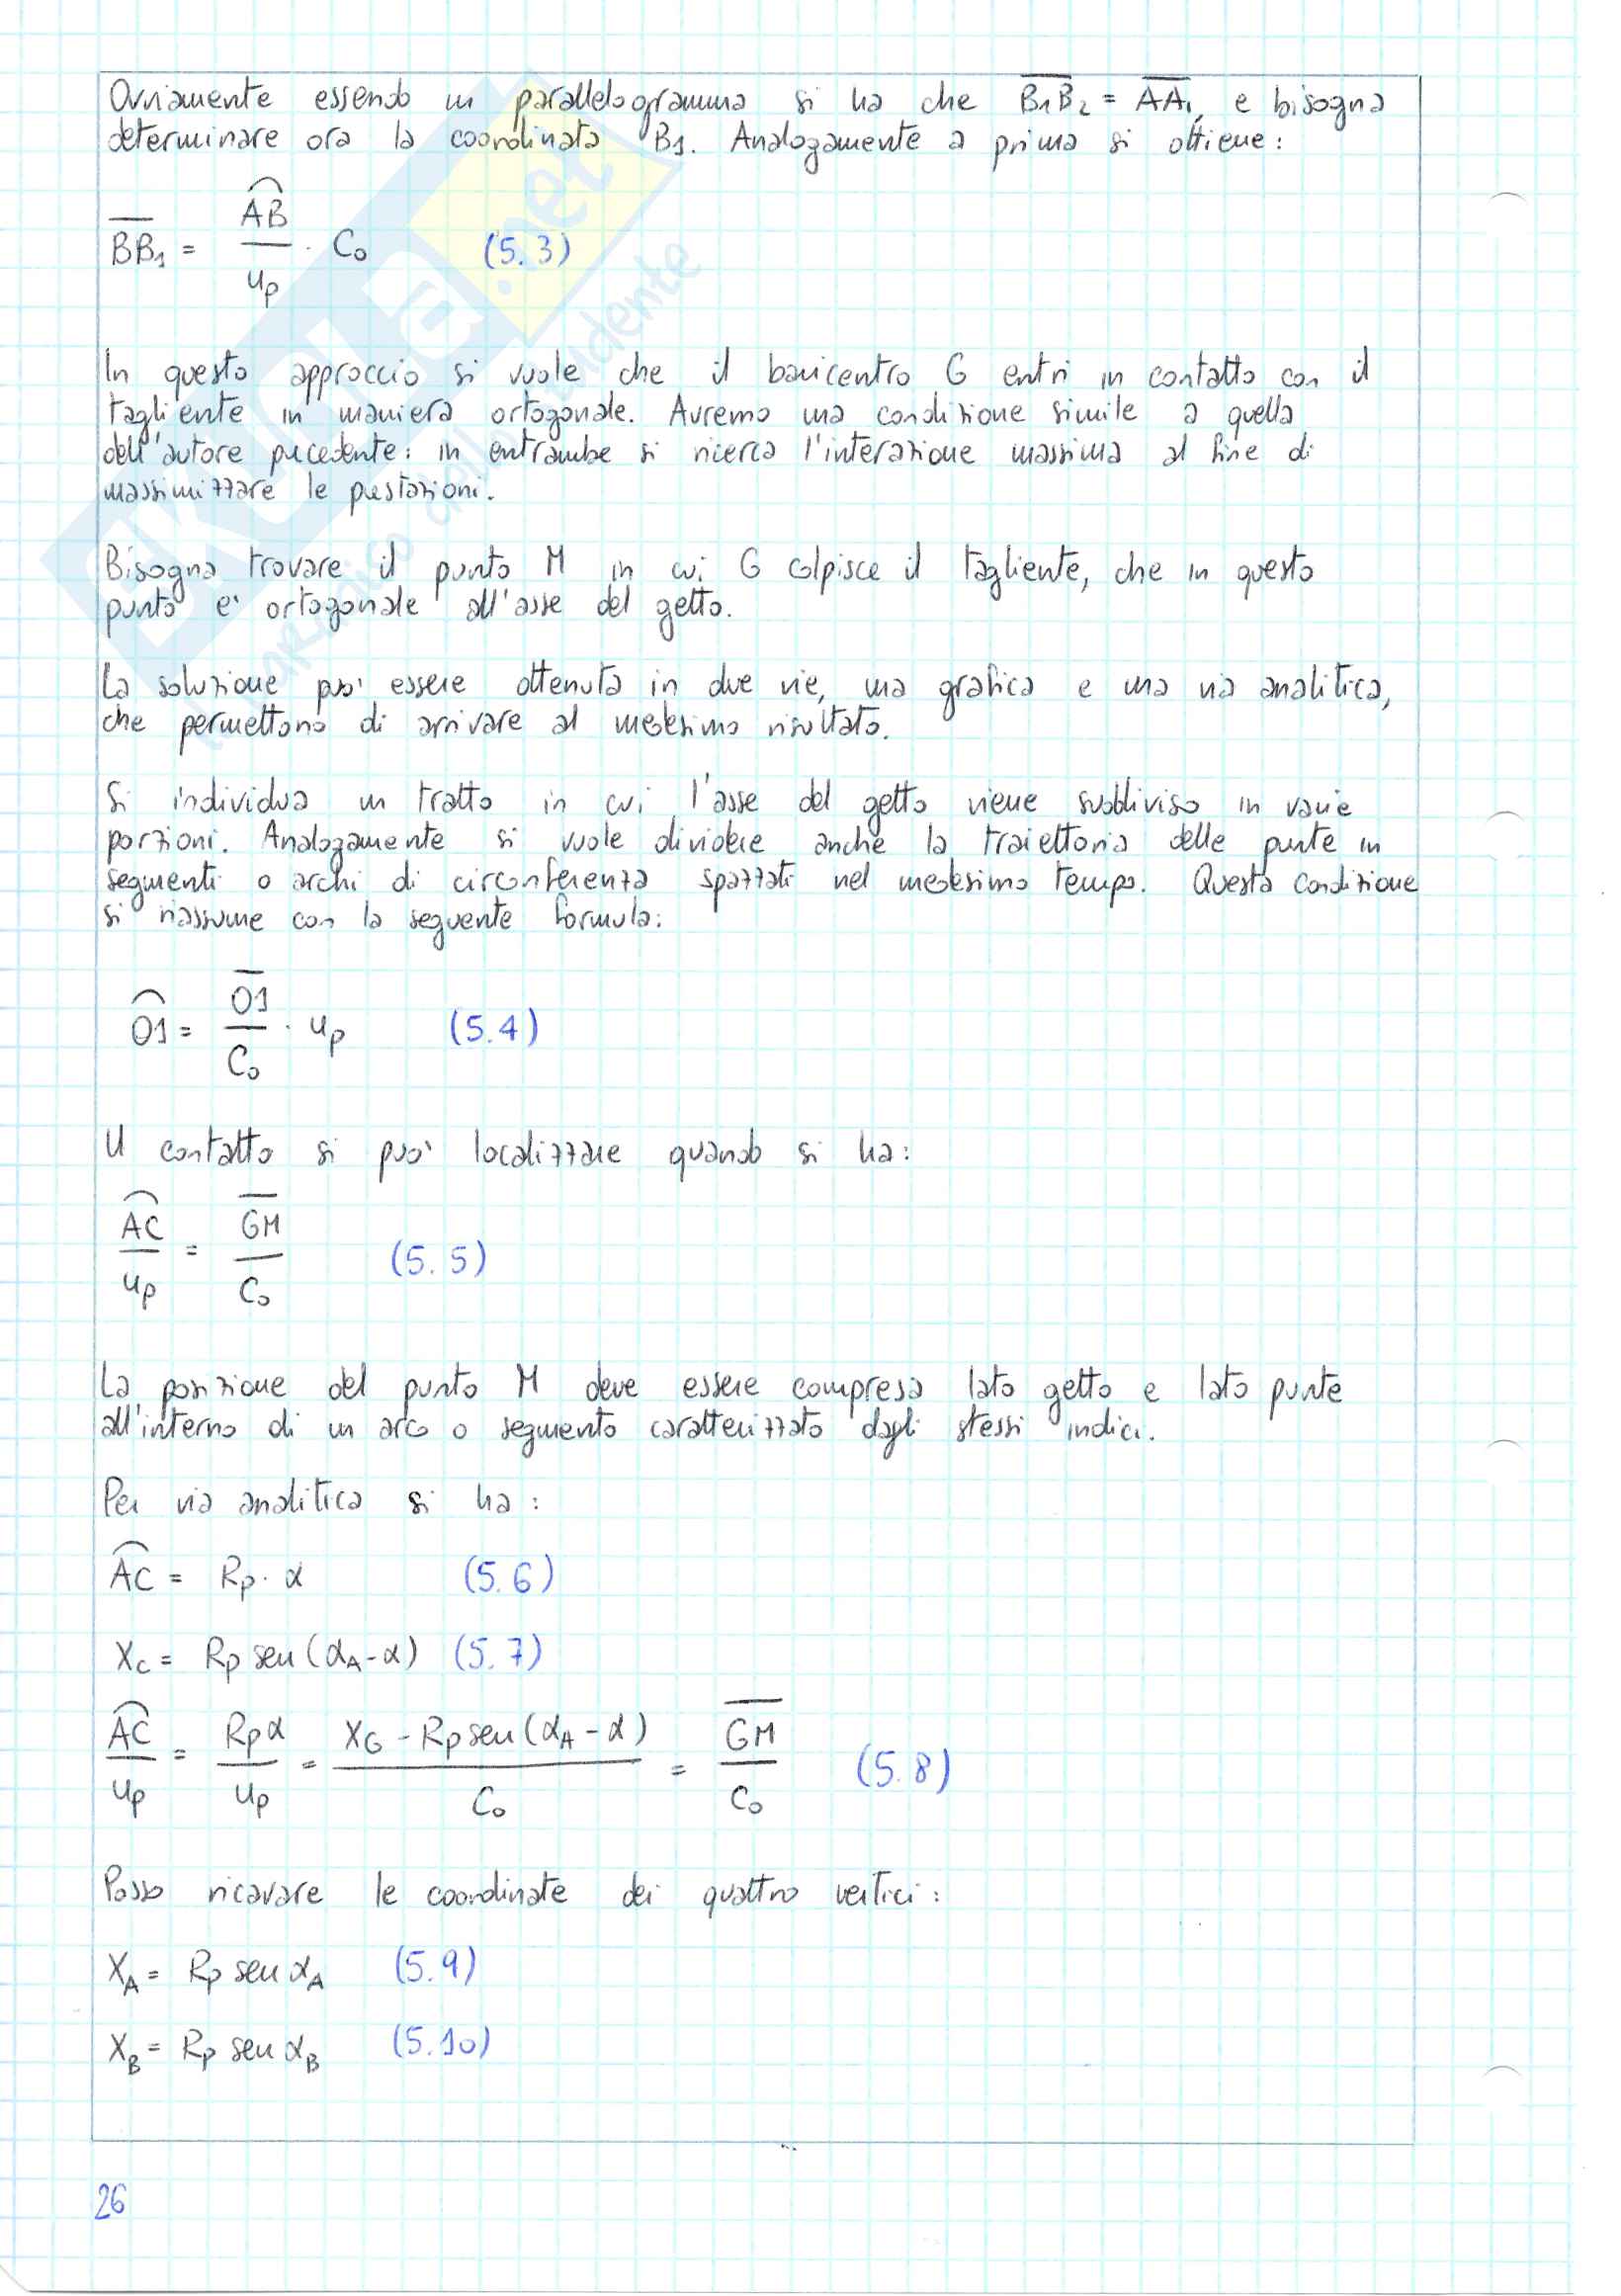 Ovviamente essendo un parallelogramma si ha che B1B2 = AA1, e bisogna
determinare ora la coordinata B1. Analogamente a prima si ottiene:
BB1 = AB/up · C0 (5.3)
In questo approccio si vuole che il baricentro G entri in contatto con il
tagliente in maniera ortogonale. Avremo una condizione simile a quella
dell'autore precedente: in entrambe si ricerca l'interazione massima al fine di
massimizzare le prestazioni.
Bisogna trovare il punto M in cui G colpisce il tagliente, che in questo
punto e' ortogonale all'asse del getto.
La soluzione puo' essere ottenuta in due vie, una grafica e una via analitica,
che permettono di arrivare al medesimo risultato.
Si individua un tratto in cui l'asse del getto viene suddiviso in varie
porzioni. Analogamente si vuole dividere anche la traiettoria delle punte in
segmenti o archi di circonferenza spazzati nel medesimo tempo. Questa condizione
si riassume con la seguente formula:
01 = 01/C0 · up (5.4)
Il contatto si puo' localizzare quando si ha:
AC/up = GM/C0 (5.5)
La posizione del punto M deve essere compresa lato getto e lato punte
all'interno di un arco o segmento caratterizzato dagli stessi indici.
Per via analitica si ha:
AC = Rp · α (5.6)
XC = Rp sen(αA - α) (5.7)
AC/up = Rpα/up = XG - Rp sen(αA - α)/C0 = GM/C0 (5.8)
Posso ricavare le coordinate dei quattro vertici:
XA = Rp sen αA (5.9)
XB = Rp sen αB (5.10)
26
skuola.net